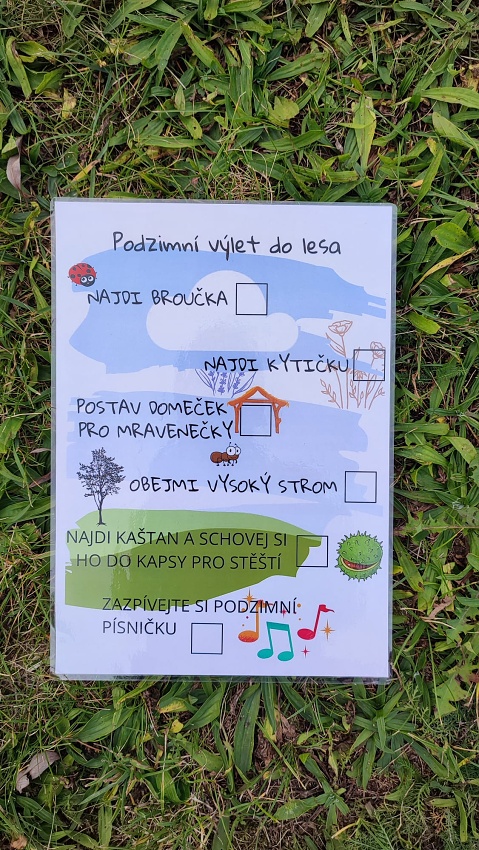 Podzimní výlet do lesa
NAJDI BROUČKA
NAJDI KYTIČKU
POSTAV DOMEČEK
PRO MRAVENEČKY
OBEJMI VYSOKÝ STROM
NAJDI KAŠTAN A SCHOVEJ SI
HO DO KAPSY PRO ŠTĚSTÍ
ZAZPÍVEJTE SI PODZIMNÍ
PÍSNIČKU